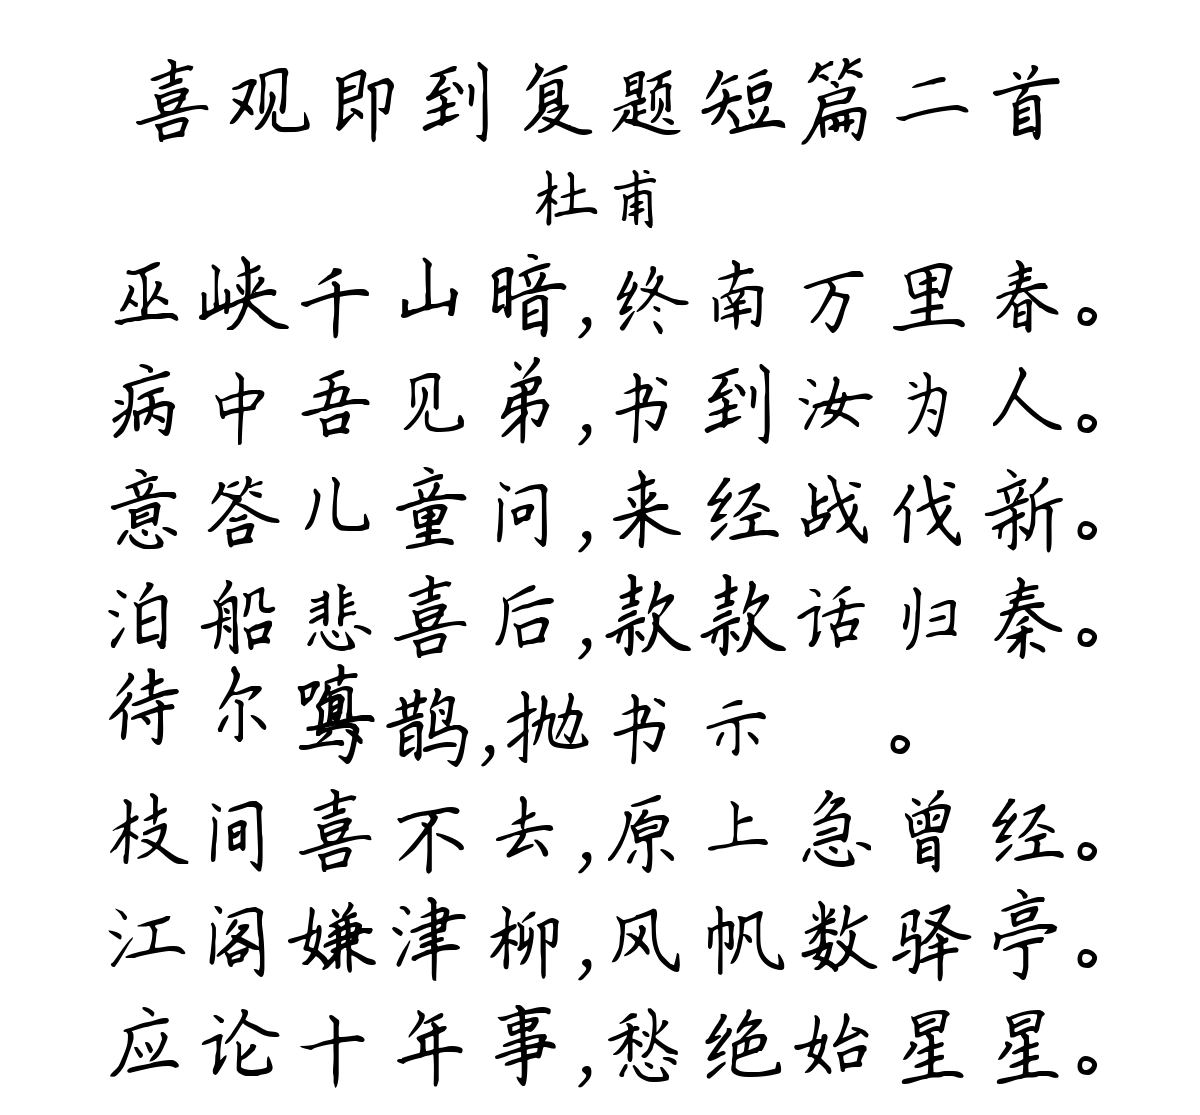 喜观即到复题短篇二首
杜甫
巫峡千山暗,终南万里春。
病中吾见弟,书到汝为人。
意答儿童问,来经战伐新。
泊船悲喜后,款款话归秦。
待尔嗔乌鹊,抛书示 。
枝间喜不去,原上急曾经。
江阁嫌津柳,风帆数驿亭。
应论十年事,愁绝始星星。